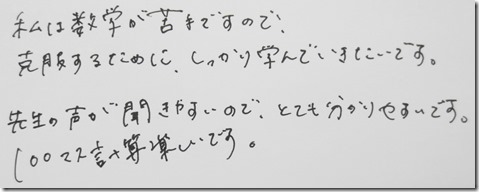 私は数学が苦手ですので、
克服するために、しっかり学んでいきたいです。
先生の声が聞きやすいので、とても分かりやすいです。
100マス計算楽しいです。